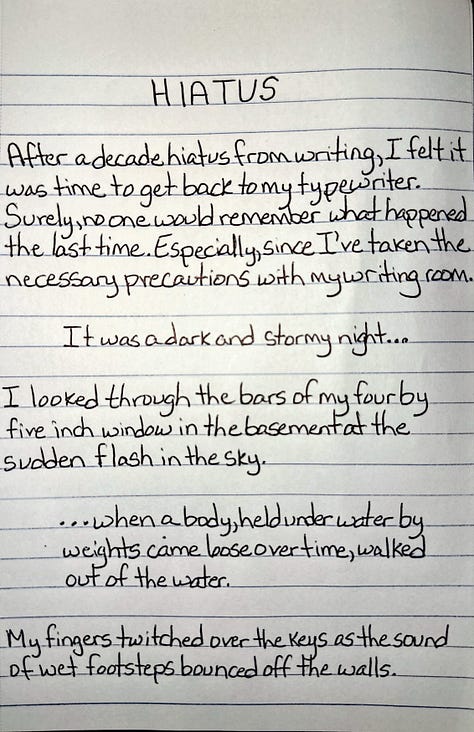 HIATUS
After a decade hiatus from writing, I felt it
was time to get back to my typewriter.
Surely, no one would remember what happened
the last time. Especially, since I've taken the
necessary precautions with my writing room.
It was a dark and stormy night...
I looked through the bars of my four by
five inch window in the basement at the
sudden flash in the sky.
...when a body, held under water by
weights came loose over time, walked
out of the water.
My fingers twitched over the keys as the sound
of wet footsteps bounced off the walls.